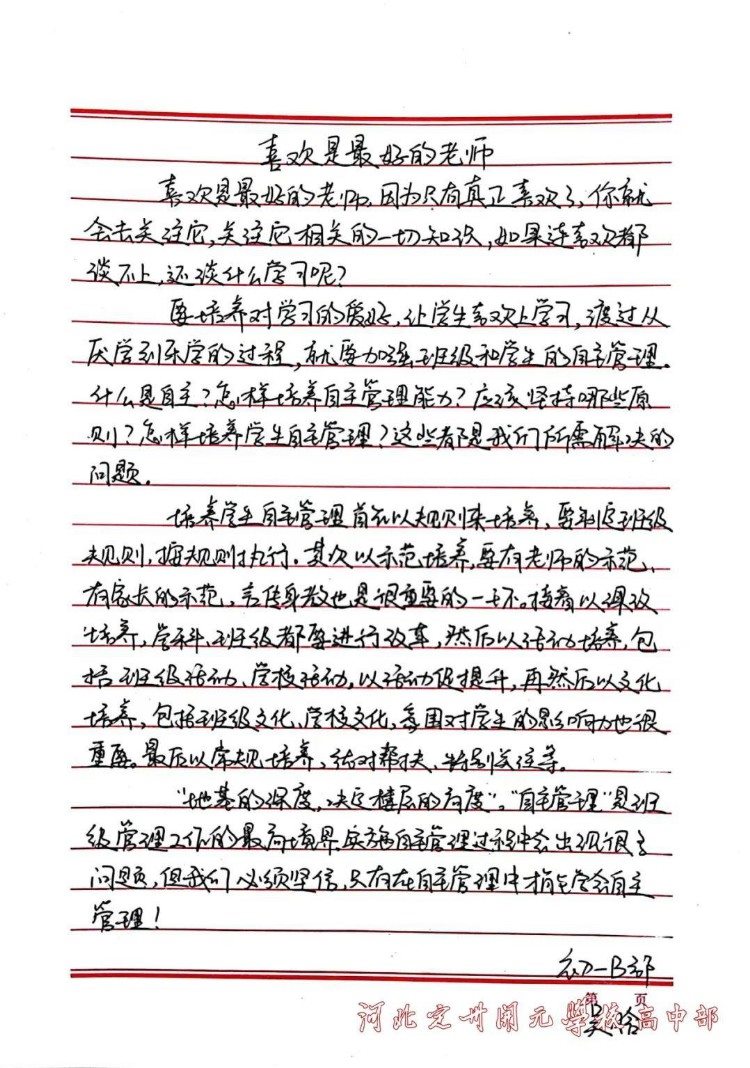 喜欢是最好的老师
喜欢是最好的老师.因为只有真正喜欢了,你就
会去关注它,关注它相关的一切知识,如果连喜欢都
谈不上,还谈什么学习呢?
要培养对学习的爱好,让学生喜欢上学习,渡过从
厌学到乐学的过程,就要加强班级和学生的自主管理.
什么是自主?怎样培养自主管理能力?应该坚持哪些原
则?怎样培养学生自主管理?这些都是我们所需解决的
问题.
培养学生自主管理首先以规则来培养,要制定班级
规则,按规则执行.其次以示范培养,要有老师的示范,
有家长的示范,言传身教也是很重要的一环。接着以课改
培养,学科、班级都要进行改革,然后以活动培养,包
括班级活动、学校活动,以活动促提升,再然后以文化
培养,包括班级文化、学校文化,氛围对学生的影响力也很
重要。最后以常规培养,结对帮扶、特别关注等。
"地基的深度,决定楼层的高度"。"自主管理"是班
级管理工作的最高境界.实施自主管理过程中会出现很多
问题,但我们必须坚信,只有在自主管理中才能学会自主
管理!
初一B部
第 页
吴晗
河北定州开元学校高中部